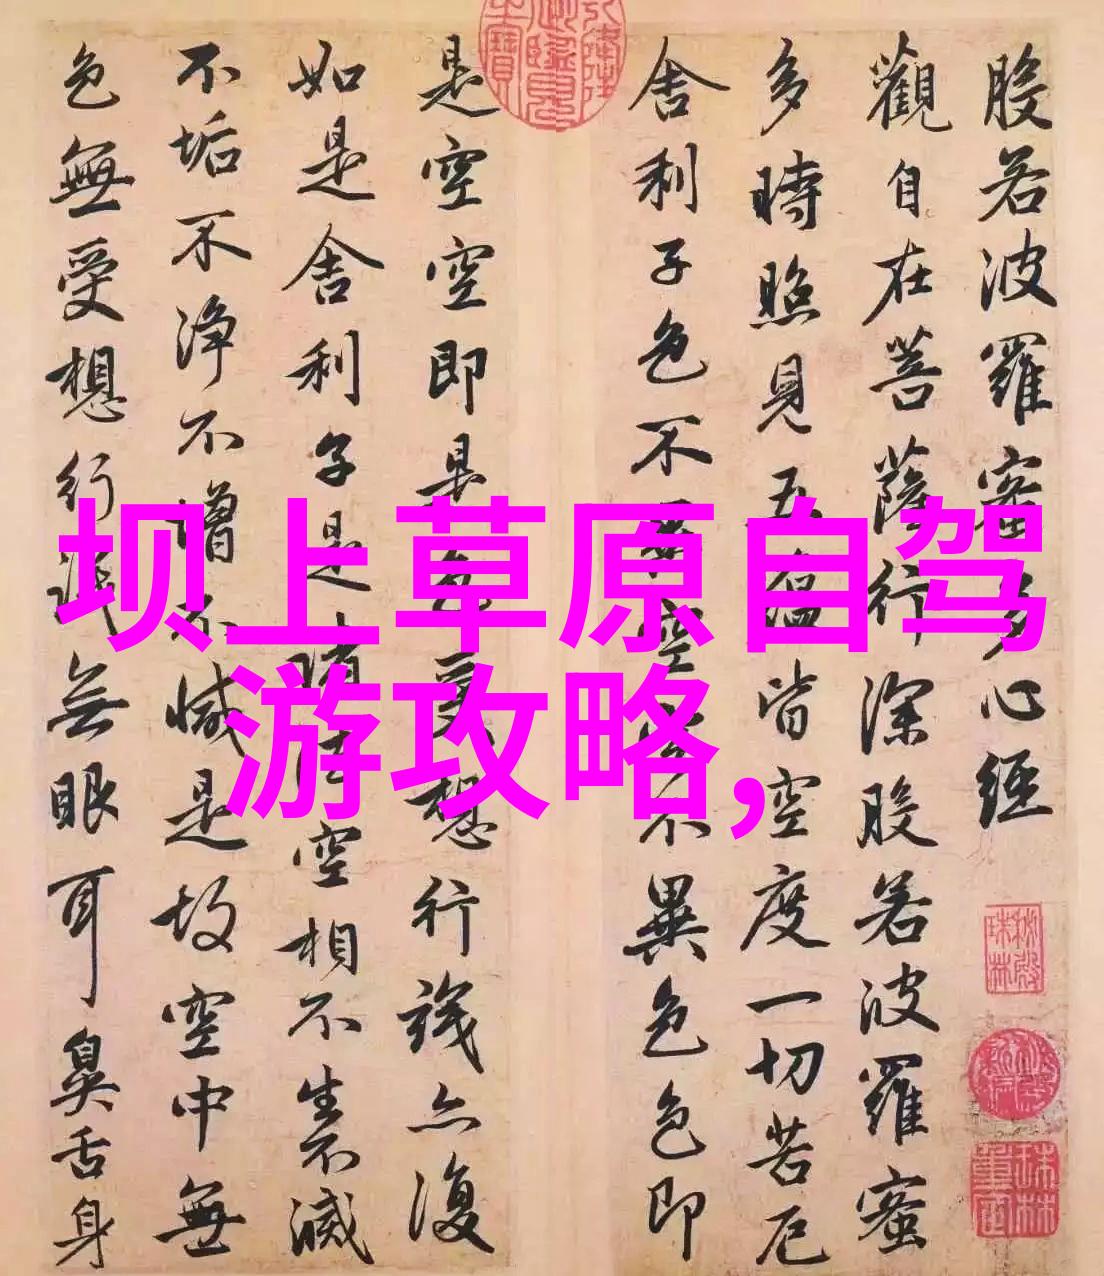 坝上草原自驾
游攻略,
般若波羅蜜多心經
觀自在菩薩行深般若波羅蜜
多時照見五蘊皆空度一切苦厄
舍利子色不異空空不異色色即
是空空即是色受想行識亦復
如是舍利子是諸法空相不生不滅
不垢不淨不增不減是故空中無
色無受想行識無眼耳鼻舌身
秘殿珠林